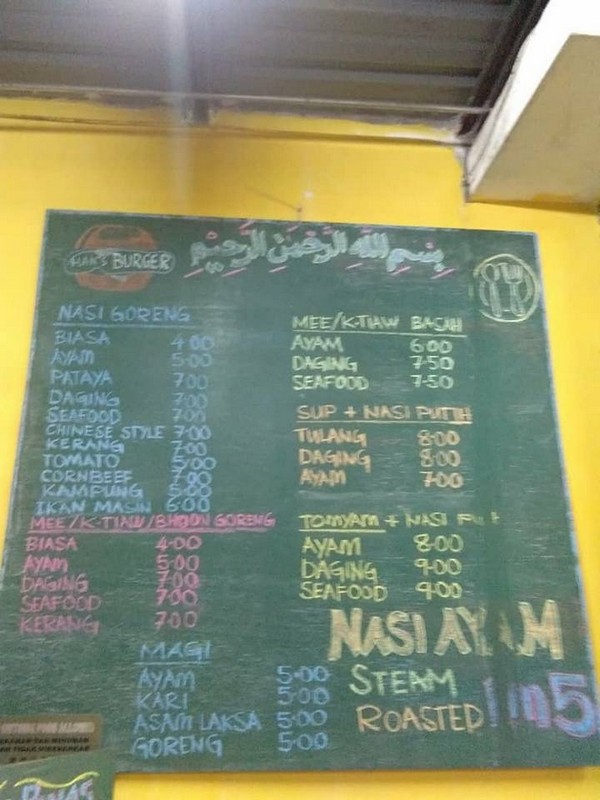 HAN'S BURGER
بِسْمِ اللَّهِ الرَّحْمَنِ الرَّحِيمِ
NASI GORENG
BIASA 4.00
AYAM 5.00
PATAYA 7.00
DAGING 7.00
SEAFOOD 7.00
CHINESE STYLE 7.00
KERANG 7.00
TOMATO 5.00
CORNBEEF 7.00
KAMPUNG 5.00
IKAN MASIN 6.00
MEE/K.TIAW/BIHUN GORENG
BIASA 4.00
AYAM 5.00
DAGING 7.00
SEAFOOD 7.00
KERANG 7.00
MAGI
AYAM 5.00
KARI 5.00
ASAM LAKSA 5.00
GORENG 5.00
MEE/K.TIAW BASAH
AYAM 6.00
DAGING 7.50
SEAFOOD 7.50
SUP + NASI PUTIH
TULANG 8.00
DAGING 8.00
AYAM 7.00
TOMYAM + NASI
AYAM 8.00
DAGING 9.00
SEAFOOD 9.00
NASI AYAM
STEAM
ROASTED 5